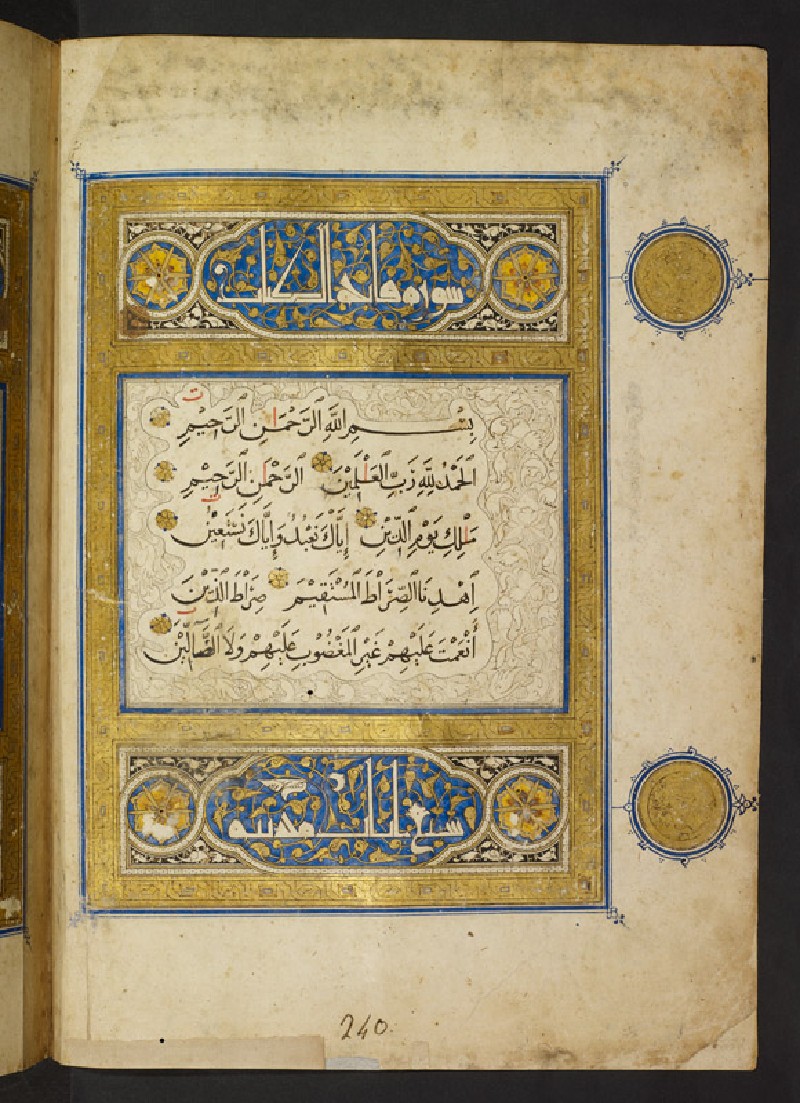 سورة فاتحة الكتاب
بِسْمِ اللَّهِ الرَّحْمَنِ الرَّحِيمِ
الْحَمْدُ لِلَّهِ رَبِّ الْعَلَمِينَ الرَّحْمَنِ الرَّحِيمِ
مَلِكِ يَوْمِ الدِّينِ إِيَّاكَ نَعْبُدُ وَإِيَّاكَ نَسْتَعِينُ
اِهْدِنَا الصِّرَاطَ الْمُسْتَقِيمَ صِرَاطَ الَّذِينَ
أَنْعَمْتَ عَلَيْهِمْ غَيْرِ الْمَغْضُوبِ عَلَيْهِمْ وَلَا الضَّآلِّينَ
سبع ايات
240.